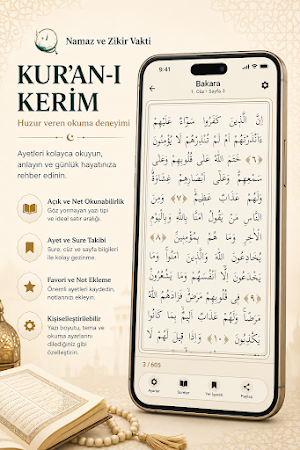 Namaz ve Zikir Vakti
KUR'AN-I
KERİM
Huzur veren okuma deneyimi
Ayetleri kolayca okuyun,
anlayın ve günlük hayatınıza
rehber edinin.
Açık ve Net Okunabilirlik
Göz yormayan yazı tipi
ve ideal satır aralığı.
Ayet ve Sure Takibi
Sure, cüz ve sayfa bilgileri
ile kolay gezinme.
Favori ve Not Ekleme
Önemli ayetleri kaydedin,
notlarınızı ekleyin.
Kişiselleştirilebilir
Yazı boyutu, tema ve
okuma ayarlarını
dilediğiniz gibi
özelleştirin.
9:41
Bakara
1. Cüz • Sayfa 3
إِنَّ الَّذِينَ كَفَرُوا سَوَاءٌ عَلَيْهِمْ
ءَأَنْذَرْتَهُمْ أَمْ لَمْ تُنْذِرْهُمْ لَا يُؤْمِنُونَ
﴿٦﴾ خَتَمَ اللَّهُ عَلَى قُلُوبِهِمْ وَعَلَى
سَمْعِهِمْ وَعَلَى أَبْصَارِهِمْ غِشَاوَةٌ
وَلَهُمْ عَذَابٌ عَظِيمٌ ﴿٧﴾ وَمِنَ
النَّاسِ مَنْ يَقُولُ آمَنَّا بِاللَّهِ وَبِالْيَوْمِ
الْآخِرِ وَمَا هُمْ بِمُؤْمِنِينَ ﴿٨﴾
يُخَادِعُونَ اللَّهَ وَالَّذِينَ آمَنُوا وَمَا
يَخْدَعُونَ إِلَّا أَنْفُسَهُمْ وَمَا يَشْعُرُونَ
﴿٩﴾ فِي قُلُوبِهِمْ مَرَضٌ فَزَادَهُمُ اللَّهُ
مَرَضًا وَلَهُمْ عَذَابٌ أَلِيمٌ بِمَا كَانُوا
يَكْذِبُونَ ﴿١٠﴾ وَإِذَا قِيلَ لَهُمْ لَا
3 / 605
Ayarlar Sureler Yer İşareti Paylaş